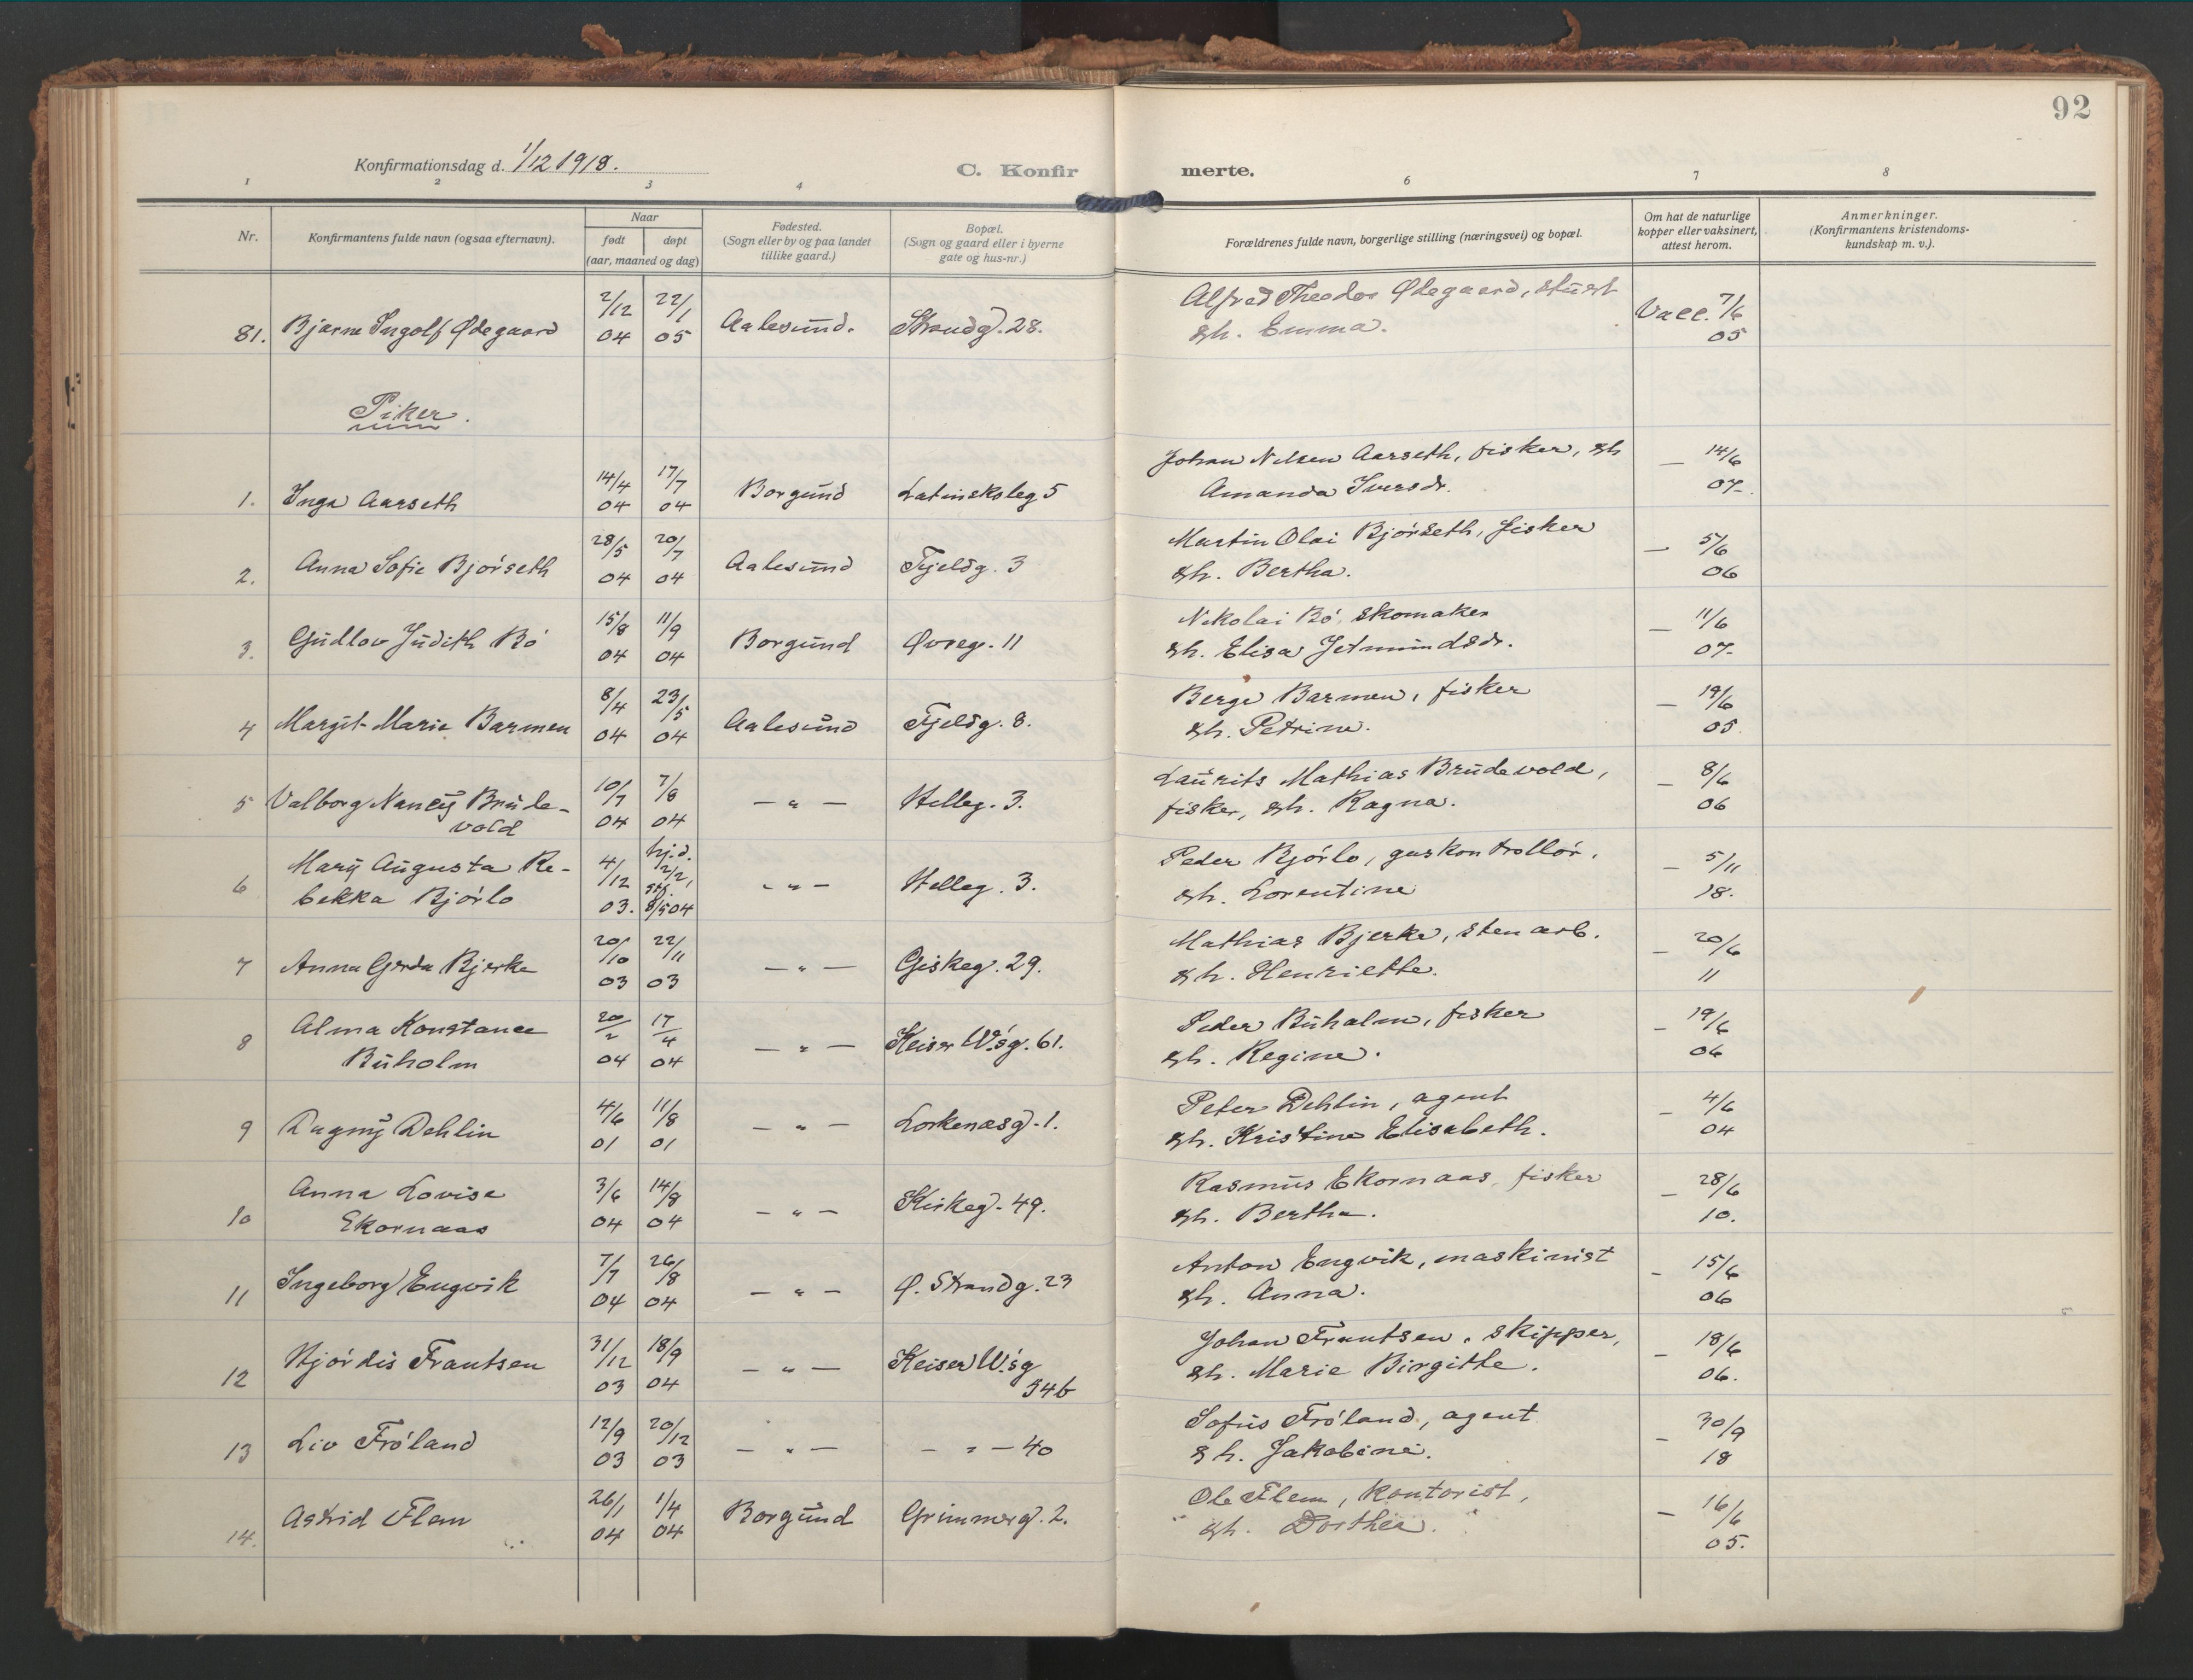 92
Konfirmationsdag d. 1/12 1918.
C. Konfirmerte.
1 2 3 4 6 7 8
Nr. Konfirmantens fulde navn (ogsaa efternavn). Naar født døpt (aar, maaned og dag) Fødested. (Sogn eller by og paa landet tillike gaard.) Bopæl. (Sogn og gaard eller i byerne gate og hus-nr.) Forældrenes fulde navn, borgerlige stilling (næringsvei) og bopæl. Om hat de naturlige kopper eller vaksinert, attest herom. Anmerkninger. (Konfirmantens kristendoms-kundskap m. v.).
81. Bjarne Ingolf Ødegaard 2/12 04 22/1 05 Aalesund. Strandg. 28. Alfred Theodor Ødegaard, stuert
&h. Emma. Vacc. 7/6 05
Piker.
1. Inga Aarseth 14/4 04 17/7 04 Borgund Latinskoleg 5 Johan Nilsen Aarseth, fisker, &h
Amanda Iversdr. — 14/6 07.
2. Anna Sofie Bjørseth 28/5 04 20/7 04 Aalesund Fjeldg. 3 Martin Olai Bjørseth, fisker
&h. Bertha. — 5/6 06
3. Gudlov Judith Bø 15/8 04 11/9 04 Borgund Øvreg. 11 Nikolai Bø, skomaker
&h. Elisa Jetmundsdr. — 11/6 07.
4 Margit Marie Barmen 8/4 04 23/5 04 Aalesund Fjeldg. 8. Berge Barmen, fisker
&h. Petrine. — 19/6 05.
5 Valborg Nancy Brude-
vold 10/7 04 7/8 04 — " — Helleg. 3. Laurits Mathias Brudevold,
fisker, &h. Ragna. — 8/6 06
6 Mary Augusta Re-
bekka Bjørlo 4/12 03. hj.d. 12/2, stf. 8/5 04 — " — Helleg. 3. Peder Bjørlo, gaskontrollør.
&h. Lorentine — 5/11 18.
7 Anna Gerda Bjerke 20/10 03 22/11 03 — " — Giskeg. 29. Mathias Bjerke, stenarb.
&h. Henriette. — 20/6 11
8 Alma Konstance
Buholm 20/2 04 17/4 04 — " — Keiser W.'sg. 61. Peder Buholm, fisker
&h. Regine. — 19/6 06
9 Dagny Dehlin 4/6 01 11/8 01 — " — Lorkenæsg. 1. Peter Dehlin, agent
&h. Kristine Elisabeth. — 4/6 04
10 Anna Lovise
Ekornaas 3/6 04 14/8 04 — " — Kirkeg. 49. Rasmus Ekornaas, fisker
&h. Bertha. — 28/6 10.
11 Ingeborg Engvik 7/7 04 26/8 04 — " — Ø. Strandg. 23 Anton Engvik, maskinist
&h. Anna. — 15/6 06
12 Hjørdis Frantsen 31/12 03 18/9 04 — " — Keiser W.'sg
54b Johan Frantsen, skipper,
&h. Marie Birgitte. — 18/6 06.
13 Liv Frøland 12/9 03 20/12 03 — " — — " — 40 Sofus Frøland, agent
&h. Jakobine. — 30/9 18
14. Astrid Flem 26/1 04 1/4 04 Borgund Grimmerg. 2. Ole Flem, kontorist,
&h. Dorthea. — 16/6 05.